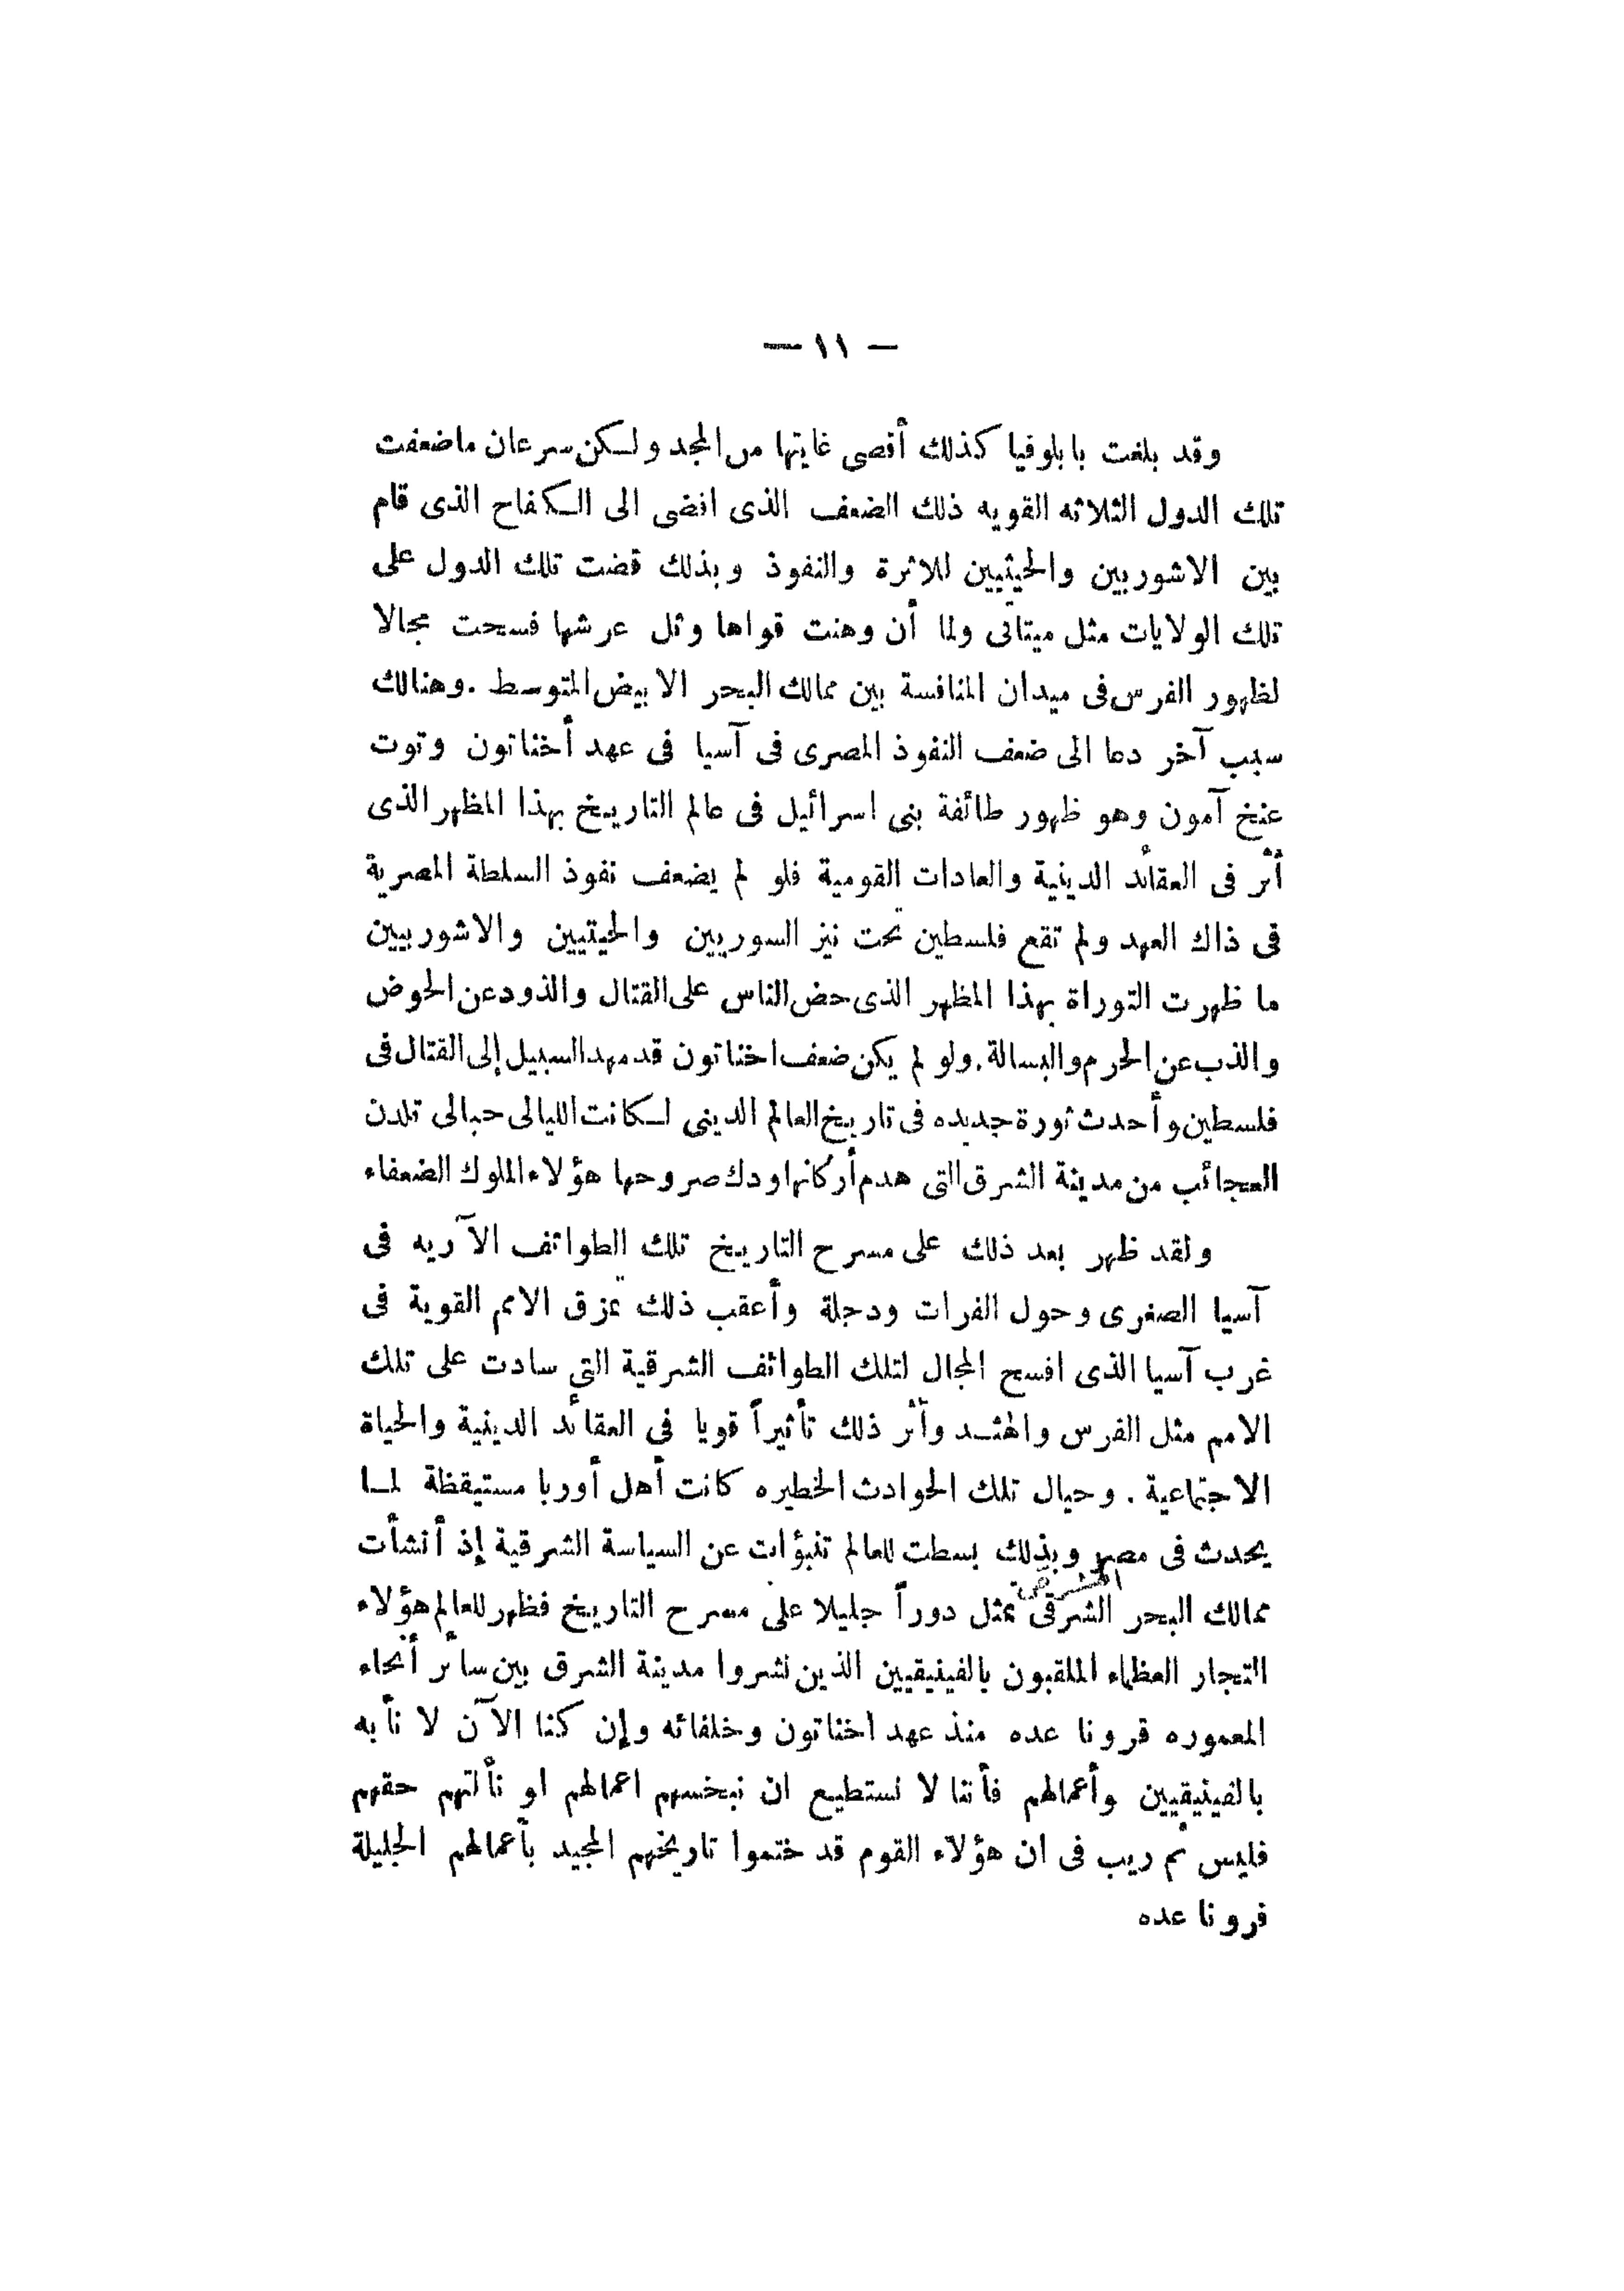 — ١١ —
وقد بلغت بابلوفيا كذلك أقصى غايتها من المجد ولكن سرعان ماضعفت
تلك الدول الثلاثه القويه ذلك الضعف الذى افضى الى الكفاح الذى قام
بين الاشوريين والحيثيين للاثرة والنفوذ وبذلك قضت تلك الدول على
تلك الولايات مثل ميتانى ولما أن وهنت قواها وثل عرشها فسحت مجالا
لظهور الفرس فى ميدان المنافسة بين ممالك البحر الابيض المتوسط . وهنالك
سبب آخر دعا الى ضعف النفوذ المصرى فى آسيا فى عهد أخناتون وتوت
عنخ آمون وهو ظهور طائفة بنى اسرائيل فى عالم التاريخ بهذا المظهر الذى
أثر فى العقائد الدينية والعادات القومية فلو لم يضعف نفوذ السلطة المصرية
فى ذاك العهد ولم تقع فلسطين تحت نيز السوريين والحيتيين والاشوريين
ما ظهرت التوراة بهذا المظهر الذى حض الناس على القتال والذود عن الحوض
والذب عن الحرم والبسالة . ولو لم يكن ضعف اخناتون قد مهد السبيل إلى القتال فى
فلسطين وأحدث ثورة جديده فى تاريخ العالم الدينى لكانت الليالى حبالى تلدن
العجائب من مدينة الشرق التى هدم أركانها ودك صروحها هؤلاء الملوك الضعفاء
ولقد ظهر بعد ذلك على مسرح التاريخ تلك الطوائف الآريه فى
آسيا الصغرى وحول الفرات ودجلة وأعقب ذلك تمزق الامم القوية فى
غرب آسيا الذى افسح المجال لتلك الطوائف الشرقية التى سادت على تلك
الامم مثل الفرس والهند وأثر ذلك تأثيراً قويا فى العقائد الدينية والحياة
الاجتماعية . وحيال تلك الحوادث الخطيره كانت أهل أوربا مستيقظة لما
يحدث فى مصر وبذلك بسطت للعالم تنبؤات عن السياسة الشرقية إذ أنشأت
ممالك البحر الشرقى تمثل دوراً جليلا على مسرح التاريخ فظهر للعالم هؤلاء
التجار العظماء الملقبون بالفينيقيين الذين نشروا مدينة الشرق بين سائر أنحاء
المعموره قرونا عده منذ عهد اخناتون وخلفائه وإن كنا الآن لا نأبه
بالفينيقيين وأعمالهم فأننا لا نستطيع ان نبخسهم اعمالهم او نألتهم حقهم
فليس ثم ريب فى ان هؤلاء القوم قد ختموا تاريخهم المجيد بأعمالهم الجليلة
قرونا عده